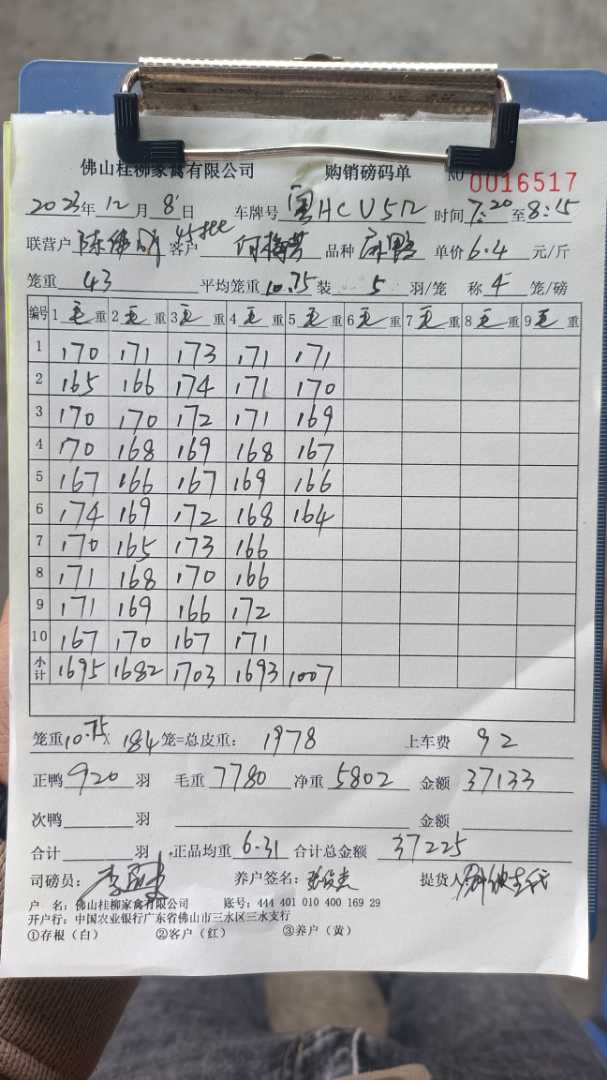 佛山桂柳家禽有限公司 购销磅码单 NO 0016517
2023年12月8日 车牌号 HCU517 时间7:20至8:15
联营户 客户 品种 单价6.4元/斤
笼重43 平均笼重10.75装5羽/笼 称4笼/磅
编号 1毛重 2毛重 3毛重 4毛重 5毛重 6毛重 7毛重 8毛重 9毛重
1 170 171 173 171 171
2 165 166 174 171 170
3 170 170 172 171 169
4 170 168 169 168 167
5 167 166 167 169 166
6 174 169 172 168 164
7 170 165 173 166
8 171 168 170 166
9 171 169 166 172
10 167 170 167 171
小计 1695 1682 1703 1693 1007
笼重10.75×184笼=总皮重：1978 上车费 92
正鸭920羽 毛重7780 净重5802 金额37133
次鸭 羽 金额
合计 羽 正品均重6.31 合计总金额37225
司磅员： 养户签名： 提货人
户 名：佛山桂柳家禽有限公司 账号：444 401 010 400 169 29
开户行：中国农业银行广东省佛山市三水区三水支行
①存根（白） ②客户（红） ③养户（黄）